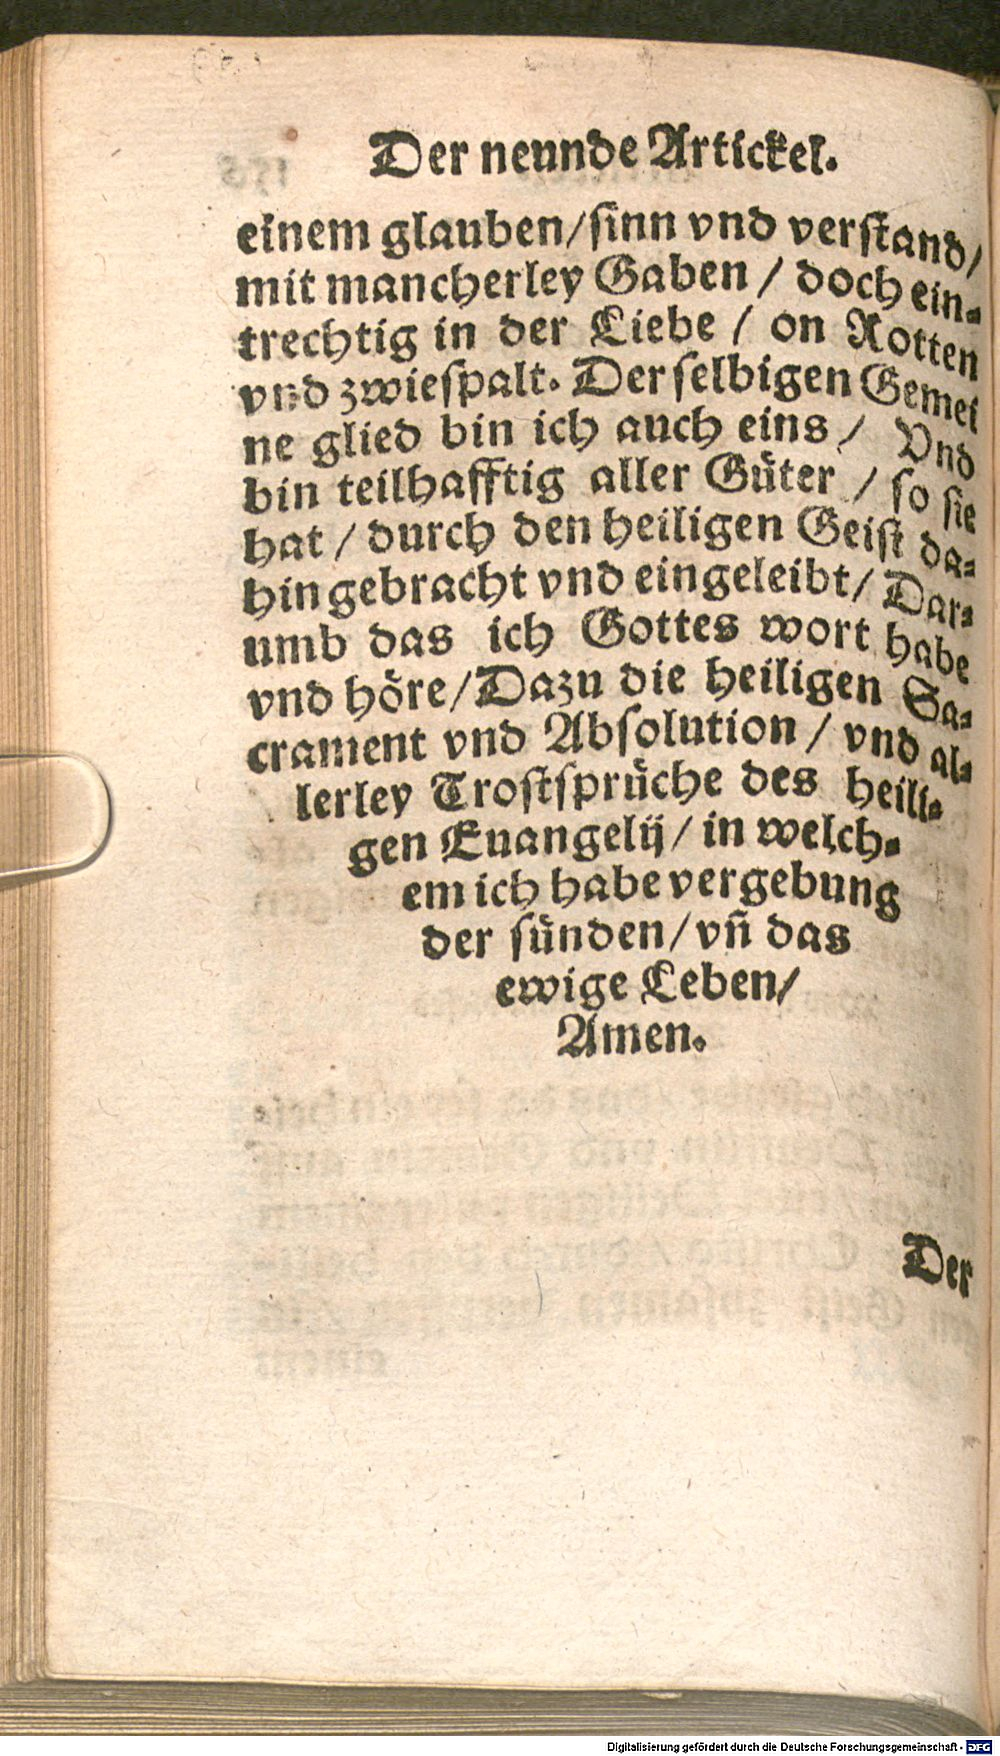 Der neunde Artickel.
einem glauben/sinn vnd verstand/
mit mancherley Gaben / doch ein-
trechtig in der Liebe / on Rotten
vnd zwiespalt. Der selbigen Gemei
ne glied bin ich auch eins / Vnd
bin teilhafftig aller Güter / so sie
hat / durch den heiligen Geist da-
hin gebracht vnd eingeleibt/ Dar-
umb das ich Gottes wort habe
vnd höre/Dazu die heiligen Sa-
crament vnd Absolution / vnd al-
lerley Trostsprüche des heili-
gen Euangelij/ in welch-
em ich habe vergebung
der sünden/vñ das
ewige Leben/
Amen.
Der
Digitalisierung gefördert durch die Deutsche Forschungsgemeinschaft - DFG